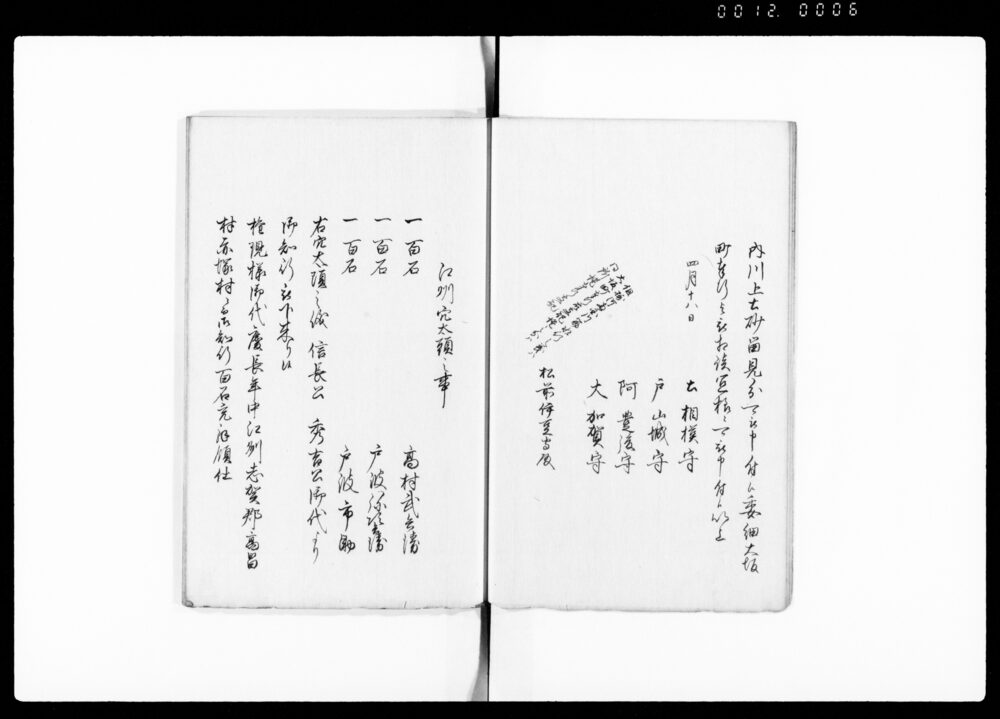 0012. 0006
内川上土砂留見分可被申付候委細大坂
町奉行与被相談宜様ニ可被申付候以上
四月十八日
土相模守
戸山城守
阿豊後守
大加賀守
松前伊豆守殿
江州穴太頭之事
一百石 高村武兵衛
一百石 戸波弥次兵衛
一百石 戸波市助
右穴太頭之儀 信長公 秀吉公御代より
御知行被下来り候
権現様御代慶長年中江州志賀郡高畠
村赤塚村ニ而御知行百石充拝領仕